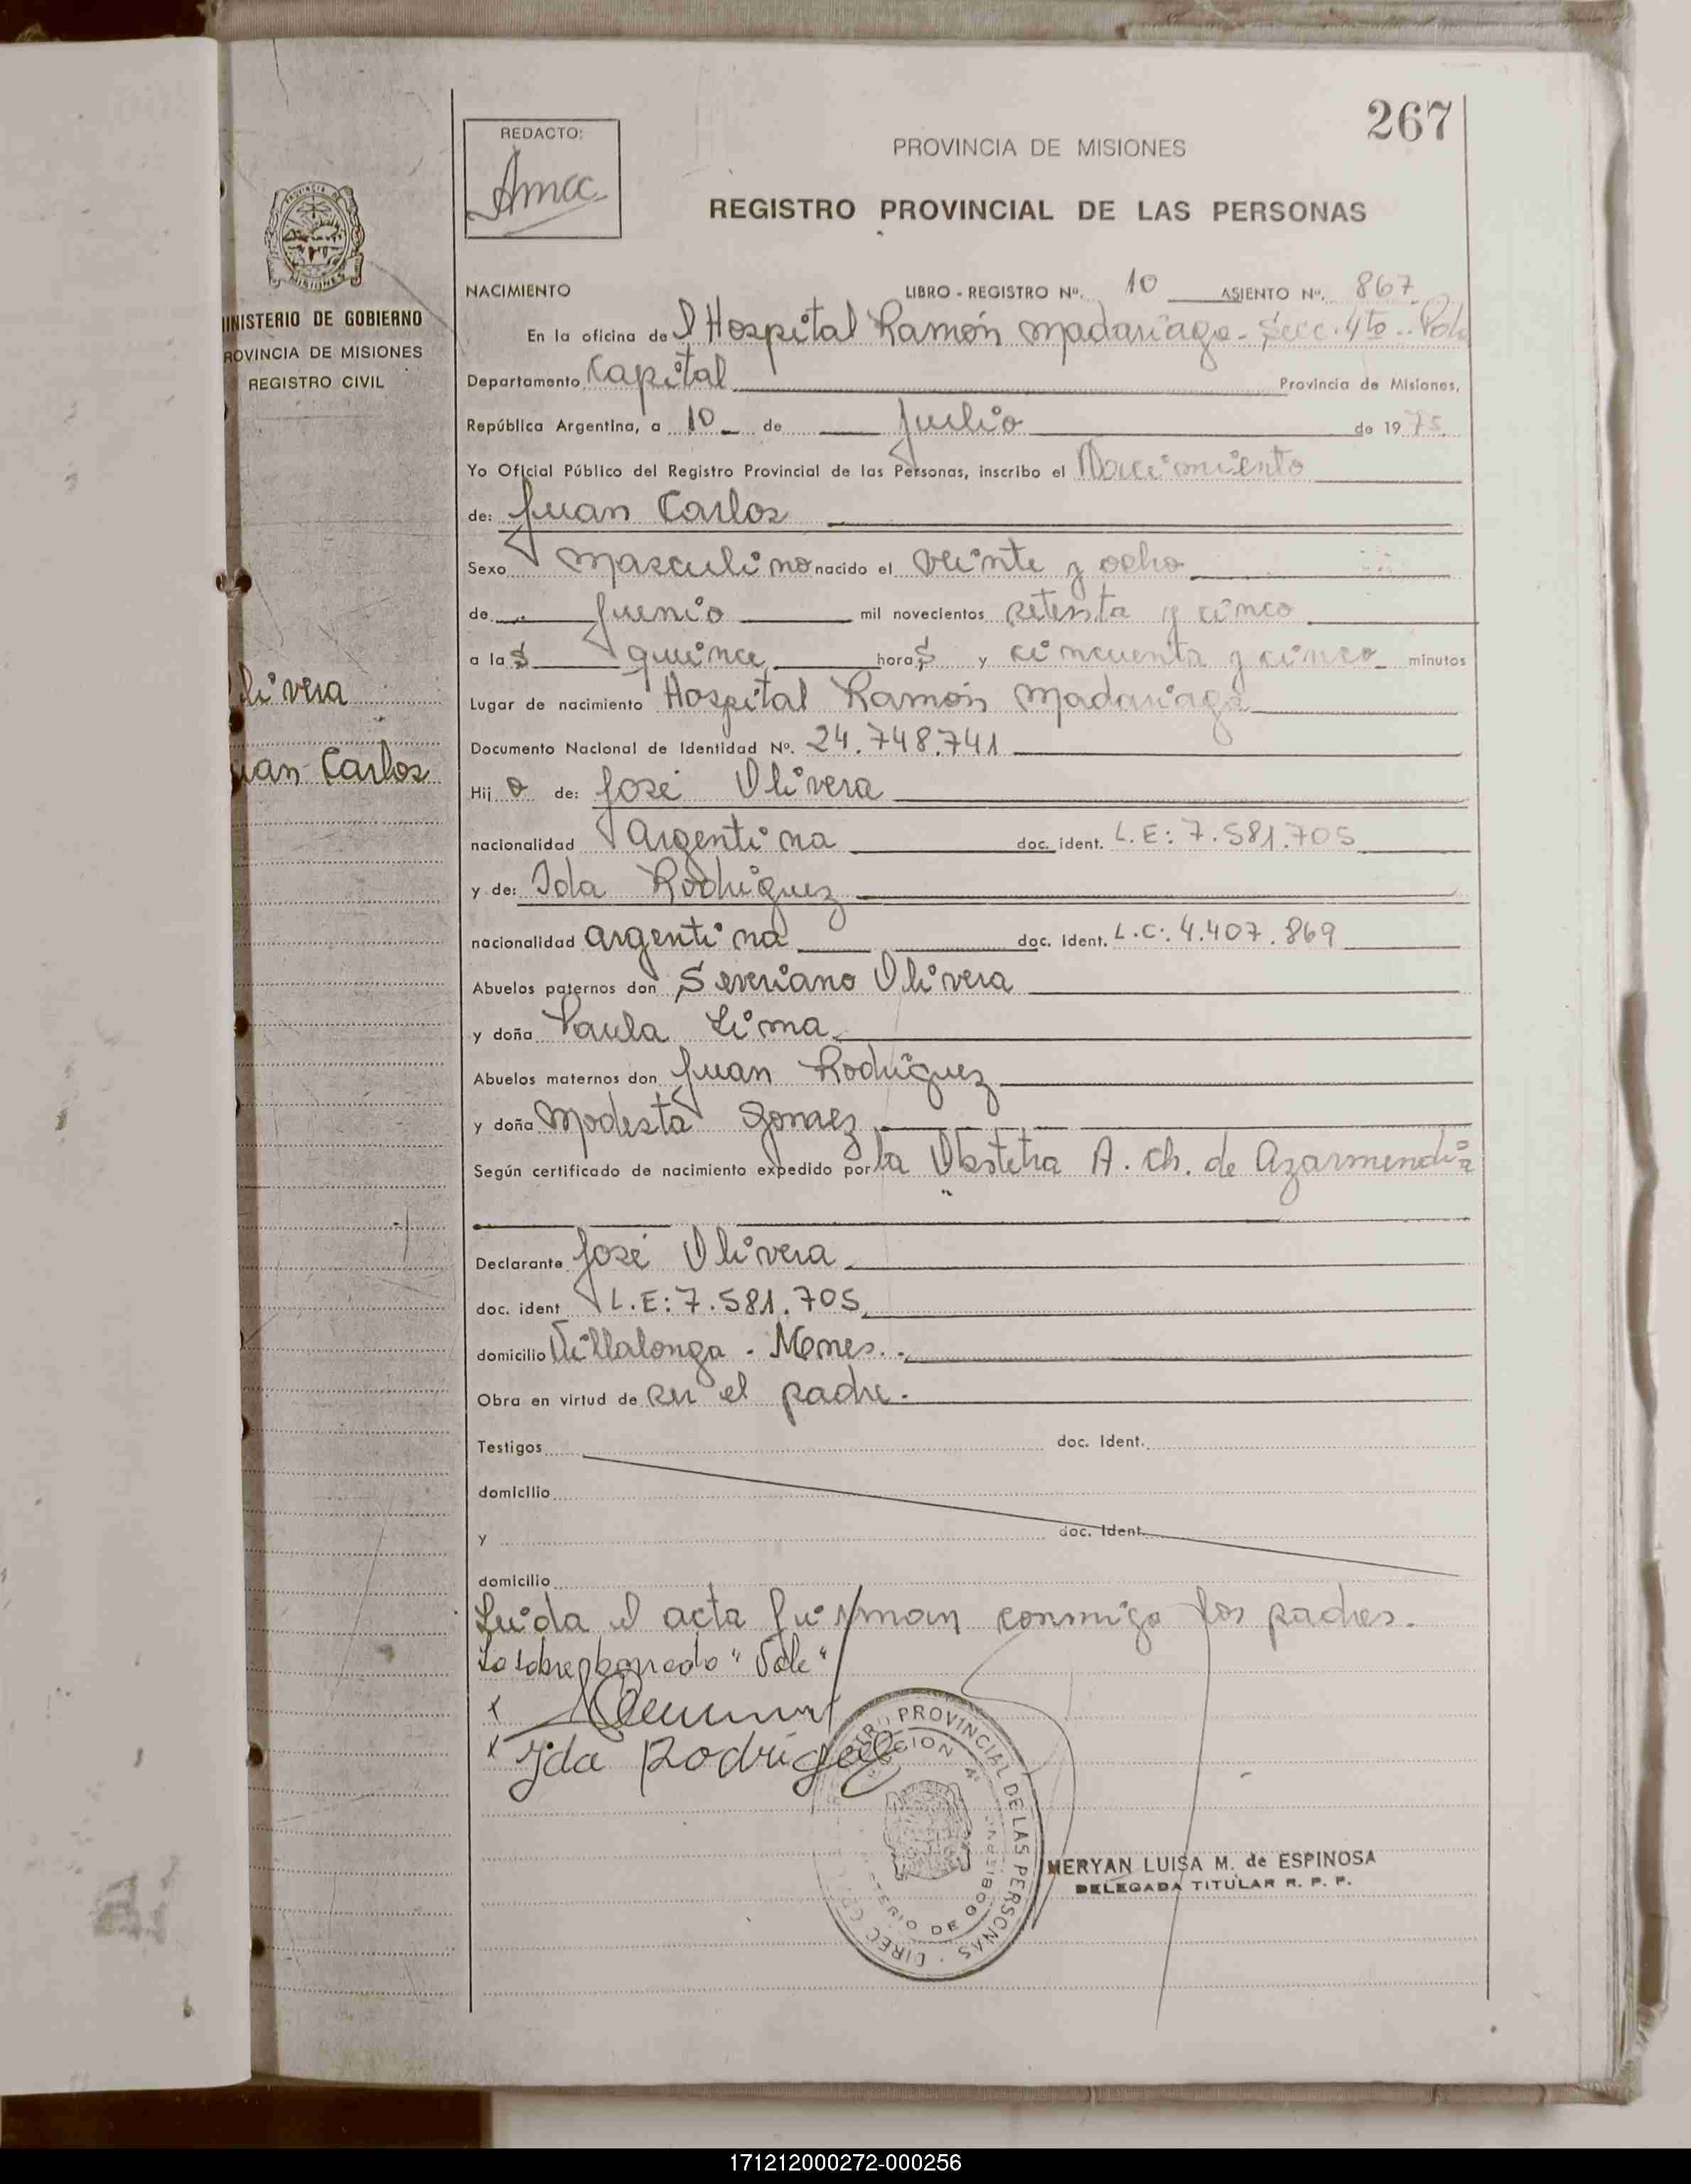 267
REDACTO:
PROVINCIA DE MISIONES
REGISTRO PROVINCIAL DE LAS PERSONAS
MINISTERIO DE GOBIERNO
PROVINCIA DE MISIONES
REGISTRO CIVIL
NACIMIENTO LIBRO - REGISTRO Nº. 10 ASIENTO Nº. 867
En la oficina del Hospital Ramón Madariaga - Secc. 4ta
Departamento Capital Provincia de Misiones,
República Argentina, a 10 de Julio de 1975
Yo Oficial Público del Registro Provincial de las Personas, inscribo el Nacimiento
de: Juan Carlos
Sexo Masculino nacido el veinte y ocho
de Junio mil novecientos setenta y cinco
a las quince horas y cincuenta y cinco minutos
livera
Lugar de nacimiento Hospital Ramón Madariaga
Documento Nacional de Identidad Nº. 24.748.741
uan Carlos
Hijo de: José Olivera
nacionalidad Argentina doc. ident. L.E: 7.581.705
y de: Ida Rodriguez
nacionalidad argentina doc. Ident. L.C: 4.407.869
Abuelos paternos don Severiano Olivera
y doña Paula Lima
Abuelos maternos don Juan Rodriguez
y doña Modesta Gomez
Según certificado de nacimiento expedido por la Obstetra A. Ch. de Azarmendia
Declarante José Olivera
doc. ident L.E: 7.581.705
domicilio Villalonga - Mones.
Obra en virtud de ser el padre.
Testigos doc. Ident.
domicilio
y doc. Ident.
domicilio
Leida el acta firman conmigo los padres.
Lo sobreborrado "Vale"
x
x Ida Rodriguez
DIREC PROVINCIAL DE LAS PERSONAS
MERYAN LUISA M. de ESPINOSA
DELEGADA TITULAR R. P. P.
171212000272-000256